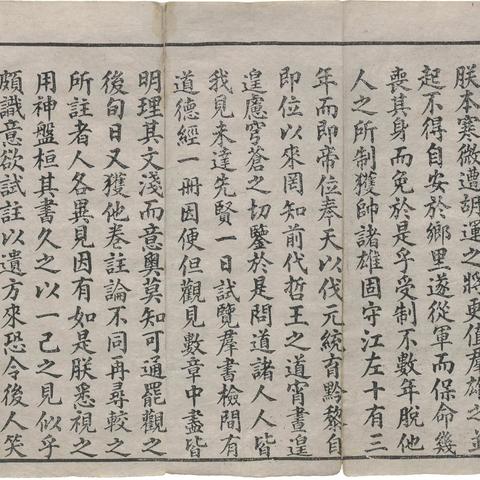 朕本寒微遭胡運之將更值羣雄之並
起不得自安於鄉里遂從軍而保命幾
喪其身而免於是乎受制不數年脫他
人之所制獲帥諸雄固守江左十有三
年而即帝位奉天以伐元統育黔黎自
即位以來罔知前代哲王之道宵晝遑
遑慮穹蒼之切鑒於是問道諸人人皆
我見未達先賢一日試覽羣書檢間有
道德經一冊因便但觀見數章中盡皆
明理其文淺而意奧莫知可通罷觀之
後旬日又獲他卷註論不同再尋較之
所註者人各異見因有如是朕悉視之
用神盤桓其書久之以一己之見似乎
頗識意欲試註以遺方來恐今後人笑